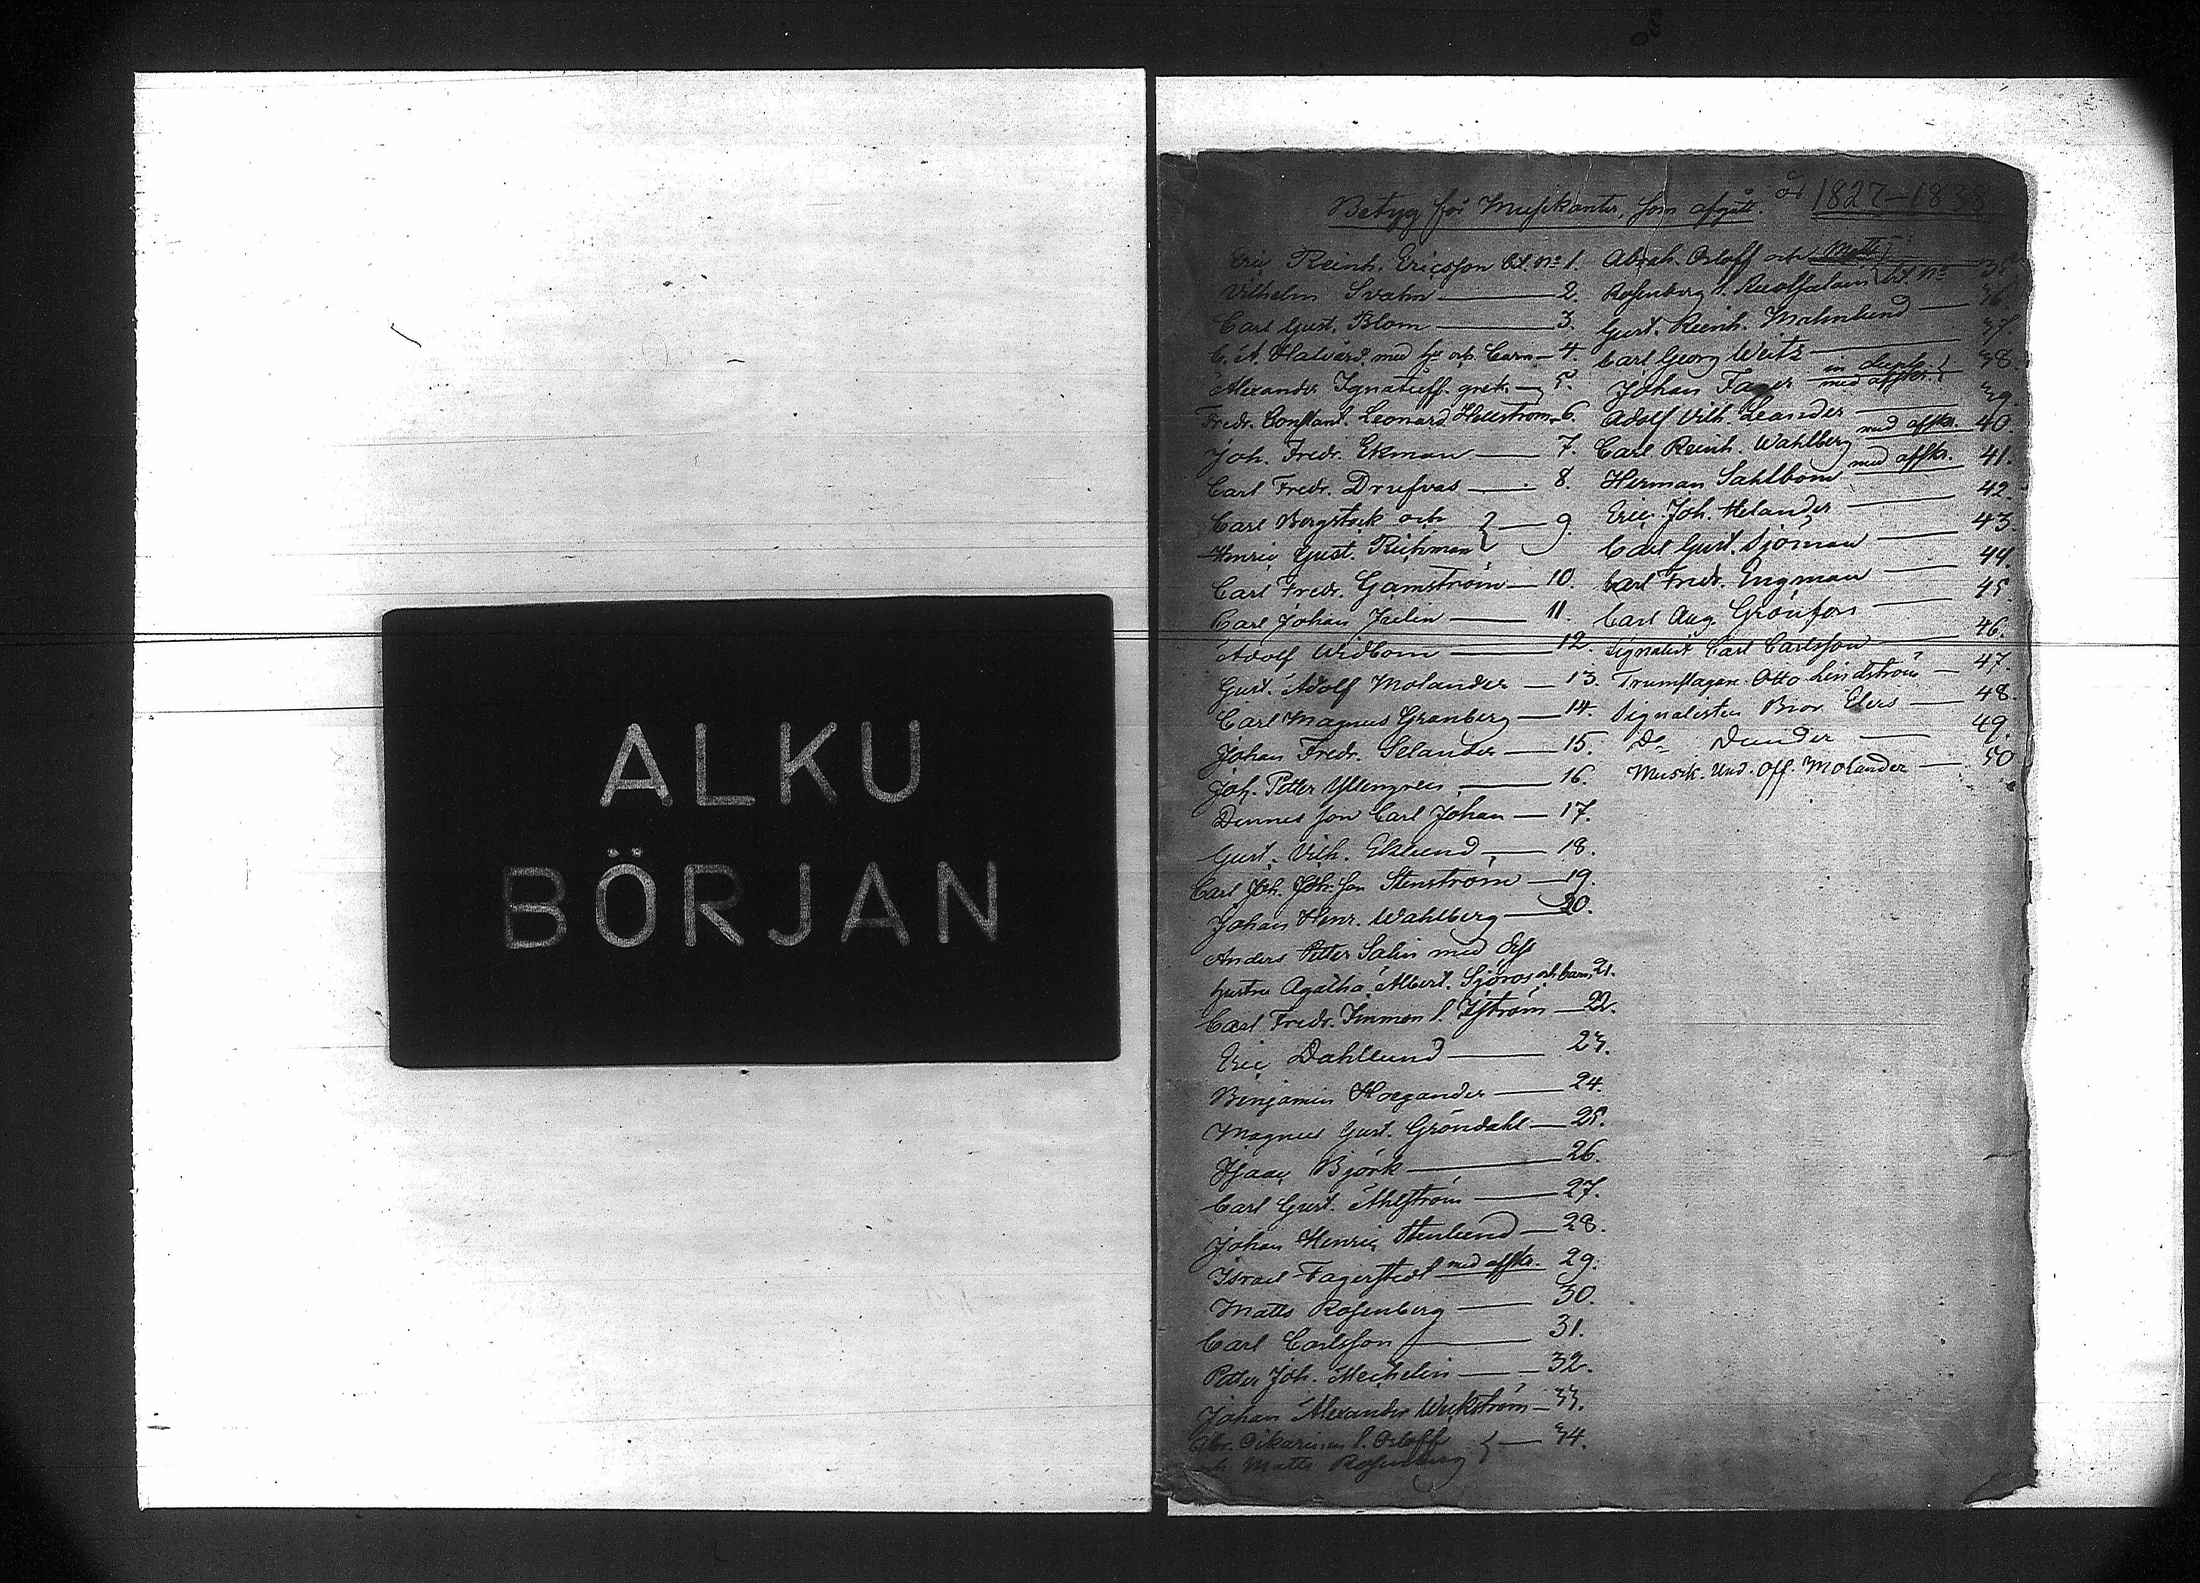 ALKU
BÖRJAN
Betyg för Musikanter, som afgått. år 1827-1838
Eric Reinh. Ericsson bil. No 1.
Vilhelm Svahn 2.
Carl Gust. Blom 3.
C. A. Halvard med hu och Barn 4.
Alexander Ignatieff grek. 5.
Fredr. Constant. Leonard Hellström 6.
Joh. Fredr. Ekman 7.
Carl Fredr. Drufvas 8.
Carl Bergstock och
Henric Gust. Richman 9.
Carl Fredr. Gamström 10.
Carl Johan Jailin 11.
Adolf Widbom 12.
Gust. Adolf Molander 13.
Carl Magnus Granberg 14.
Johan Fredr. Selander 15.
Joh. Petter Yllengren 16.
Dennes son Carl Johan 17.
Gust. Vilh. Eklund 18.
Carl Joh. Joh:son Stenström 19.
Johan Henr. Wahlberg 20.
Anders Petter Salin med
hustru Agatha Albert. Sjöros och barn 21.
Carl Fredr. Immon l. Iström 22.
Eric Dahllund 23.
Benjamin Hoegander 24.
Magnus Gust. Gröndahl 25.
Isaac Björk 26.
Carl Gust. Ahlström 27.
Johan Henric Stenlund 28.
Israel Fagerstedt med afskr. 29.
Matts Rosenberg 30.
Carl Carlsson 31.
Petter Joh. Mechelin 32.
Johan Alexander Weckström 33.
Abr. Oikarinen l. Orloff
och Matts Rosenberg 34.
Abrah. Orloff och Matts
Rosenberg l. Ruotsalain bil. No 35
Gust. Reinh. Malmlund 36.
Carl Georg Weitz 37.
Johan Fager in duplo med afskr. 38.
Adolf Vilh. Leander 39.
Carl Reinh. Wahlberg med afskr. 40.
Herman Sahlbom med afskr. 41.
Eric Joh. Helander 42.
Carl Gust. Sjöman 43.
Carl Fredr. Engman 44.
Carl Aug. Grönfors 45.
Signalist Carl Carlsson 46.
Trumslagare Otto Lindström 47.
Signalisten Bror Elers 48.
Do Dunder 49.
Musik. Und. Off. Molander 50